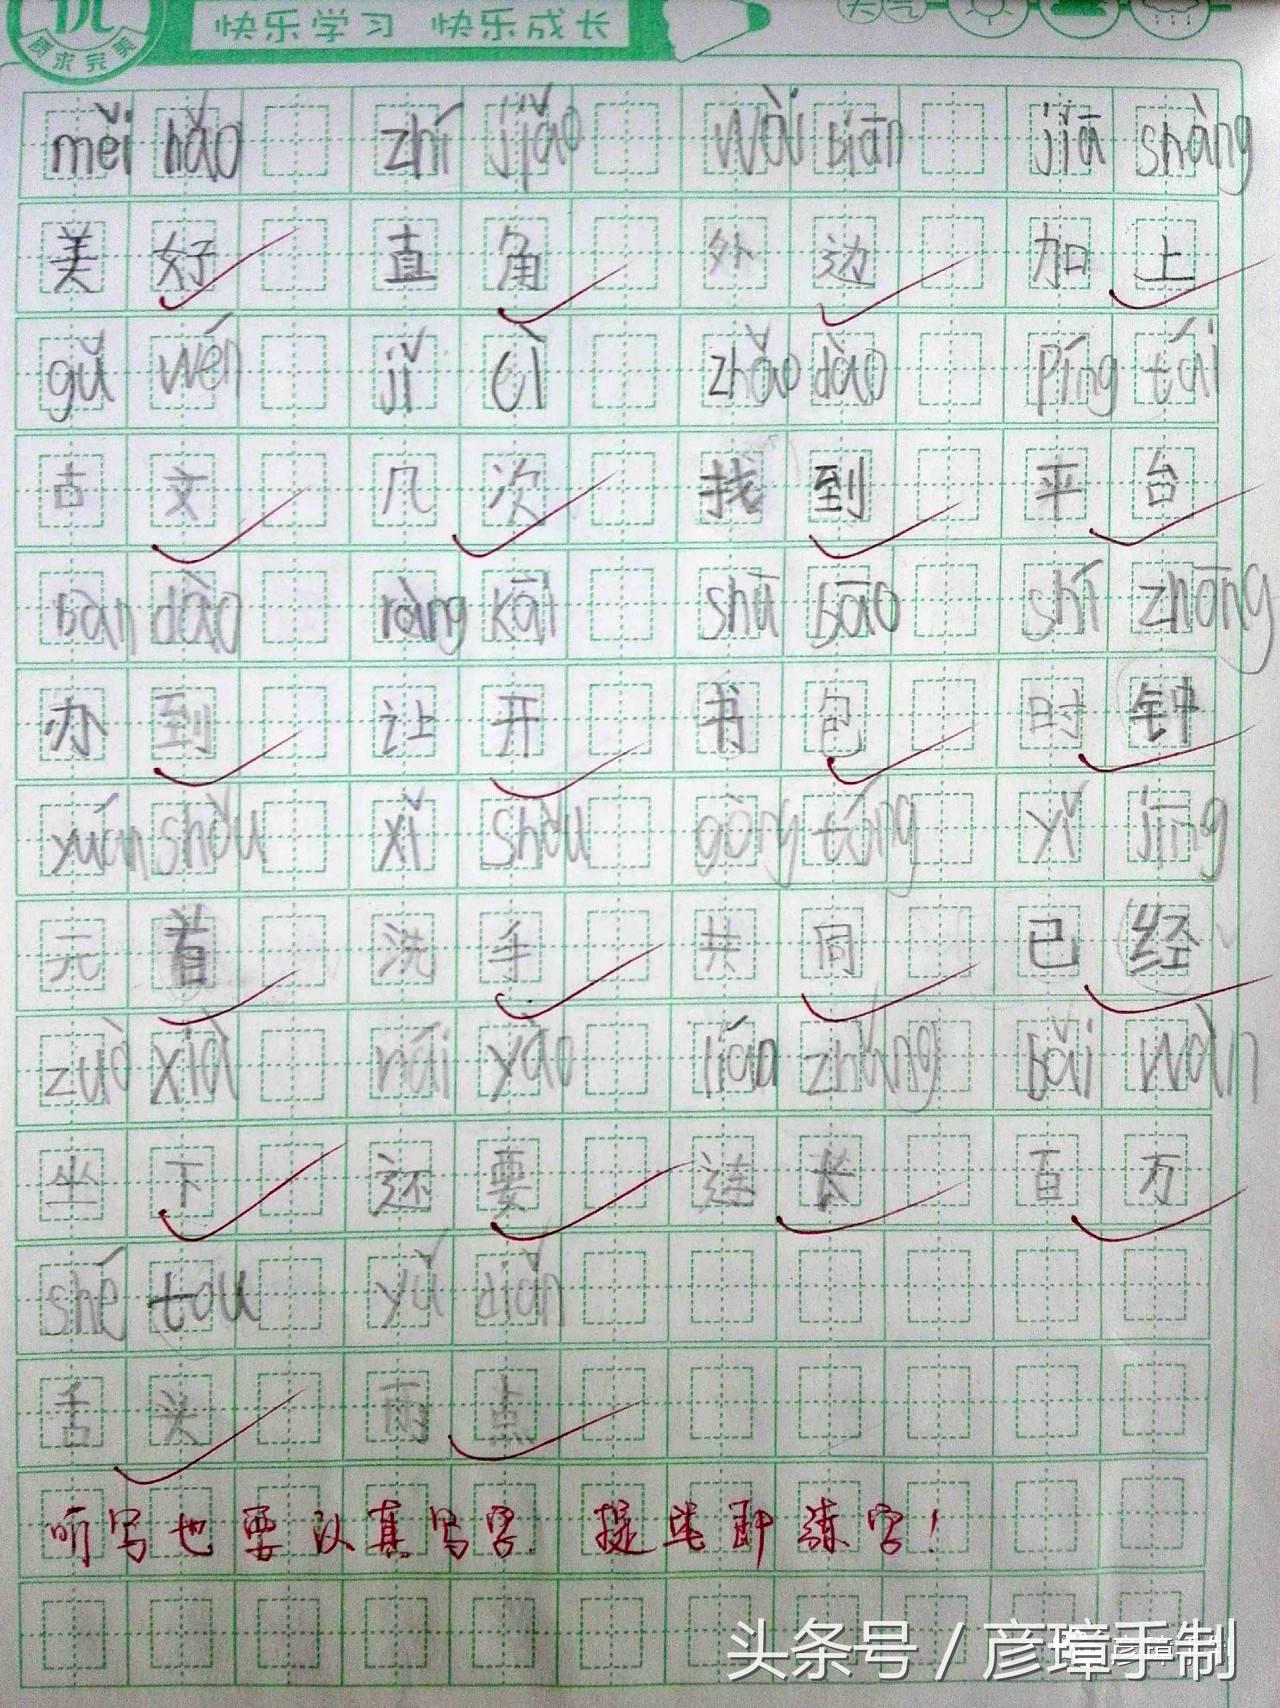 质求完美
快乐学习 快乐成长
天气
měi hǎo zhí jiǎo wài biān jiā shàng
美好 直角 外边 加上
gǔ wén jǐ cì zhǎo dào píng tái
古文 几次 找到 平台
bàn dào ràng kāi shū bāo shí zhōng
办到 让开 书包 时钟
yuán shǒu xǐ shǒu gòng tóng yǐ jīng
元首 洗手 共同 已经
zuò xià hái yào lián zhǎng bǎi wàn
坐下 还要 连长 百万
shé tou yǔ diǎn
舌头 雨点
听写也要认真写字 提笔即练字！
头条号 / 彦璋手制